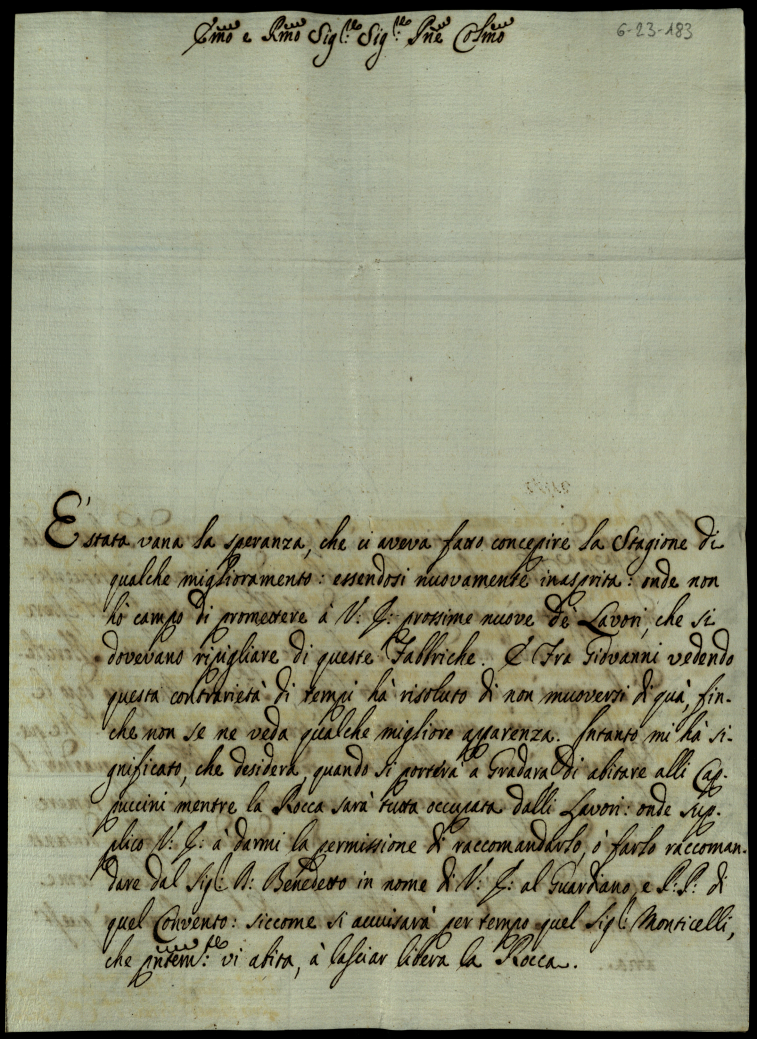 Emo e Rmo Sigre: Sigre: Pne Colmo
6-23-183
E' stata vana la speranza, che ci aveva fatto concepire la Stagione di
qualche miglioramento: essendosi nuovamente inasprita: onde non
hò campo di promettere à V: I: prossime nuove de' Lavori, che si
dovevano ripigliare di queste Fabbriche. E Fra Giovanni vedendo
questa contrarietà di tempi hà risoluto di non muoversi di quà, fin-
che non se ne veda qualche migliore apparenza. Intanto mi hà si-
gnificato, che desidera, quando si porterà a Gradara di abitare alli Cap-
puccini mentre la Rocca sarà tutta occupata dalli Lavori: onde sup-
plico V: I: à darmi la permissione di raccomandarlo, ò farlo raccoman-
dare dal Sigr: D: Benedetto in nome di V: I: al Guardiano, e P.P: di
quel Convento: siccome si avviserà per tempo quel Sigr: Monticelli,
che vi abita, à lasciar libera la Rocca.